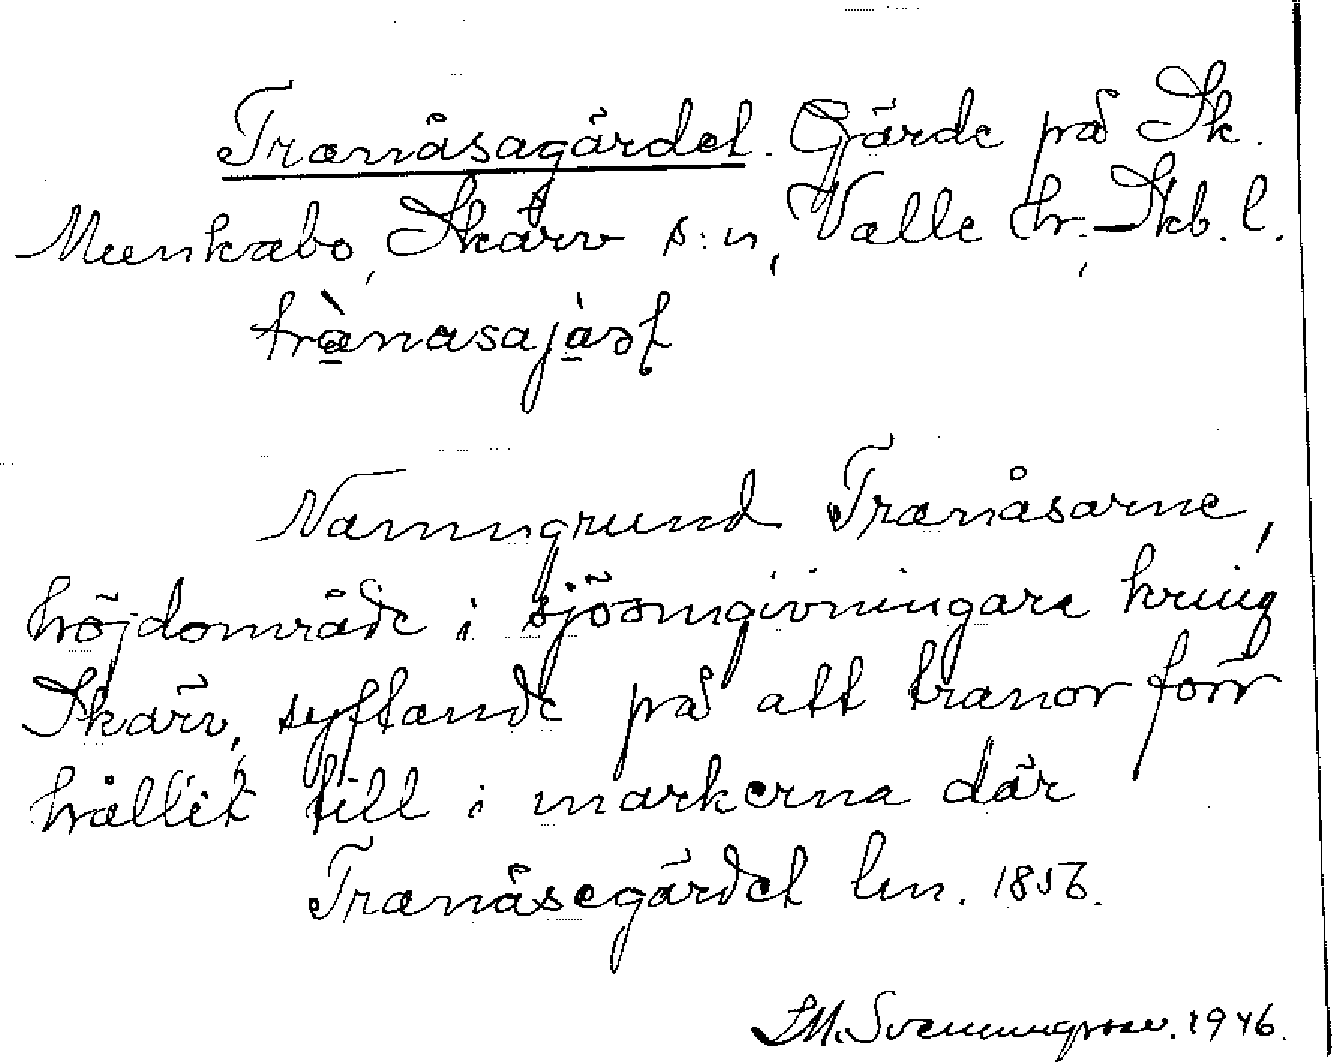 Tranåsagärdet. Gärde på St.
Munkabo, Skärv s:n, Valle hr, Skb. l.
trànasajàst
Namngrund Tranåsarne,
höjdområde i sjöomgivningare kring
Skärv, syftande på att tranor förr
hållit till i markerna där
Tranåsegärdet lm. 1856.
S.M. Svenungsson. 1946.